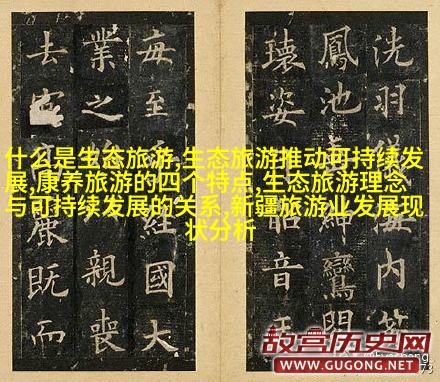 洗羽儀海內
鳳池紳鸞
姿韶音
每至經國大
業之親喪
去麗既而
什么是生态旅游,生态旅游推动可持续发
展,康养旅游的四个特点,生态旅游理念
与可持续发展的关系,新疆旅游业发展现
状分析
故宫历史网
WWW.GUGONG.NET
73